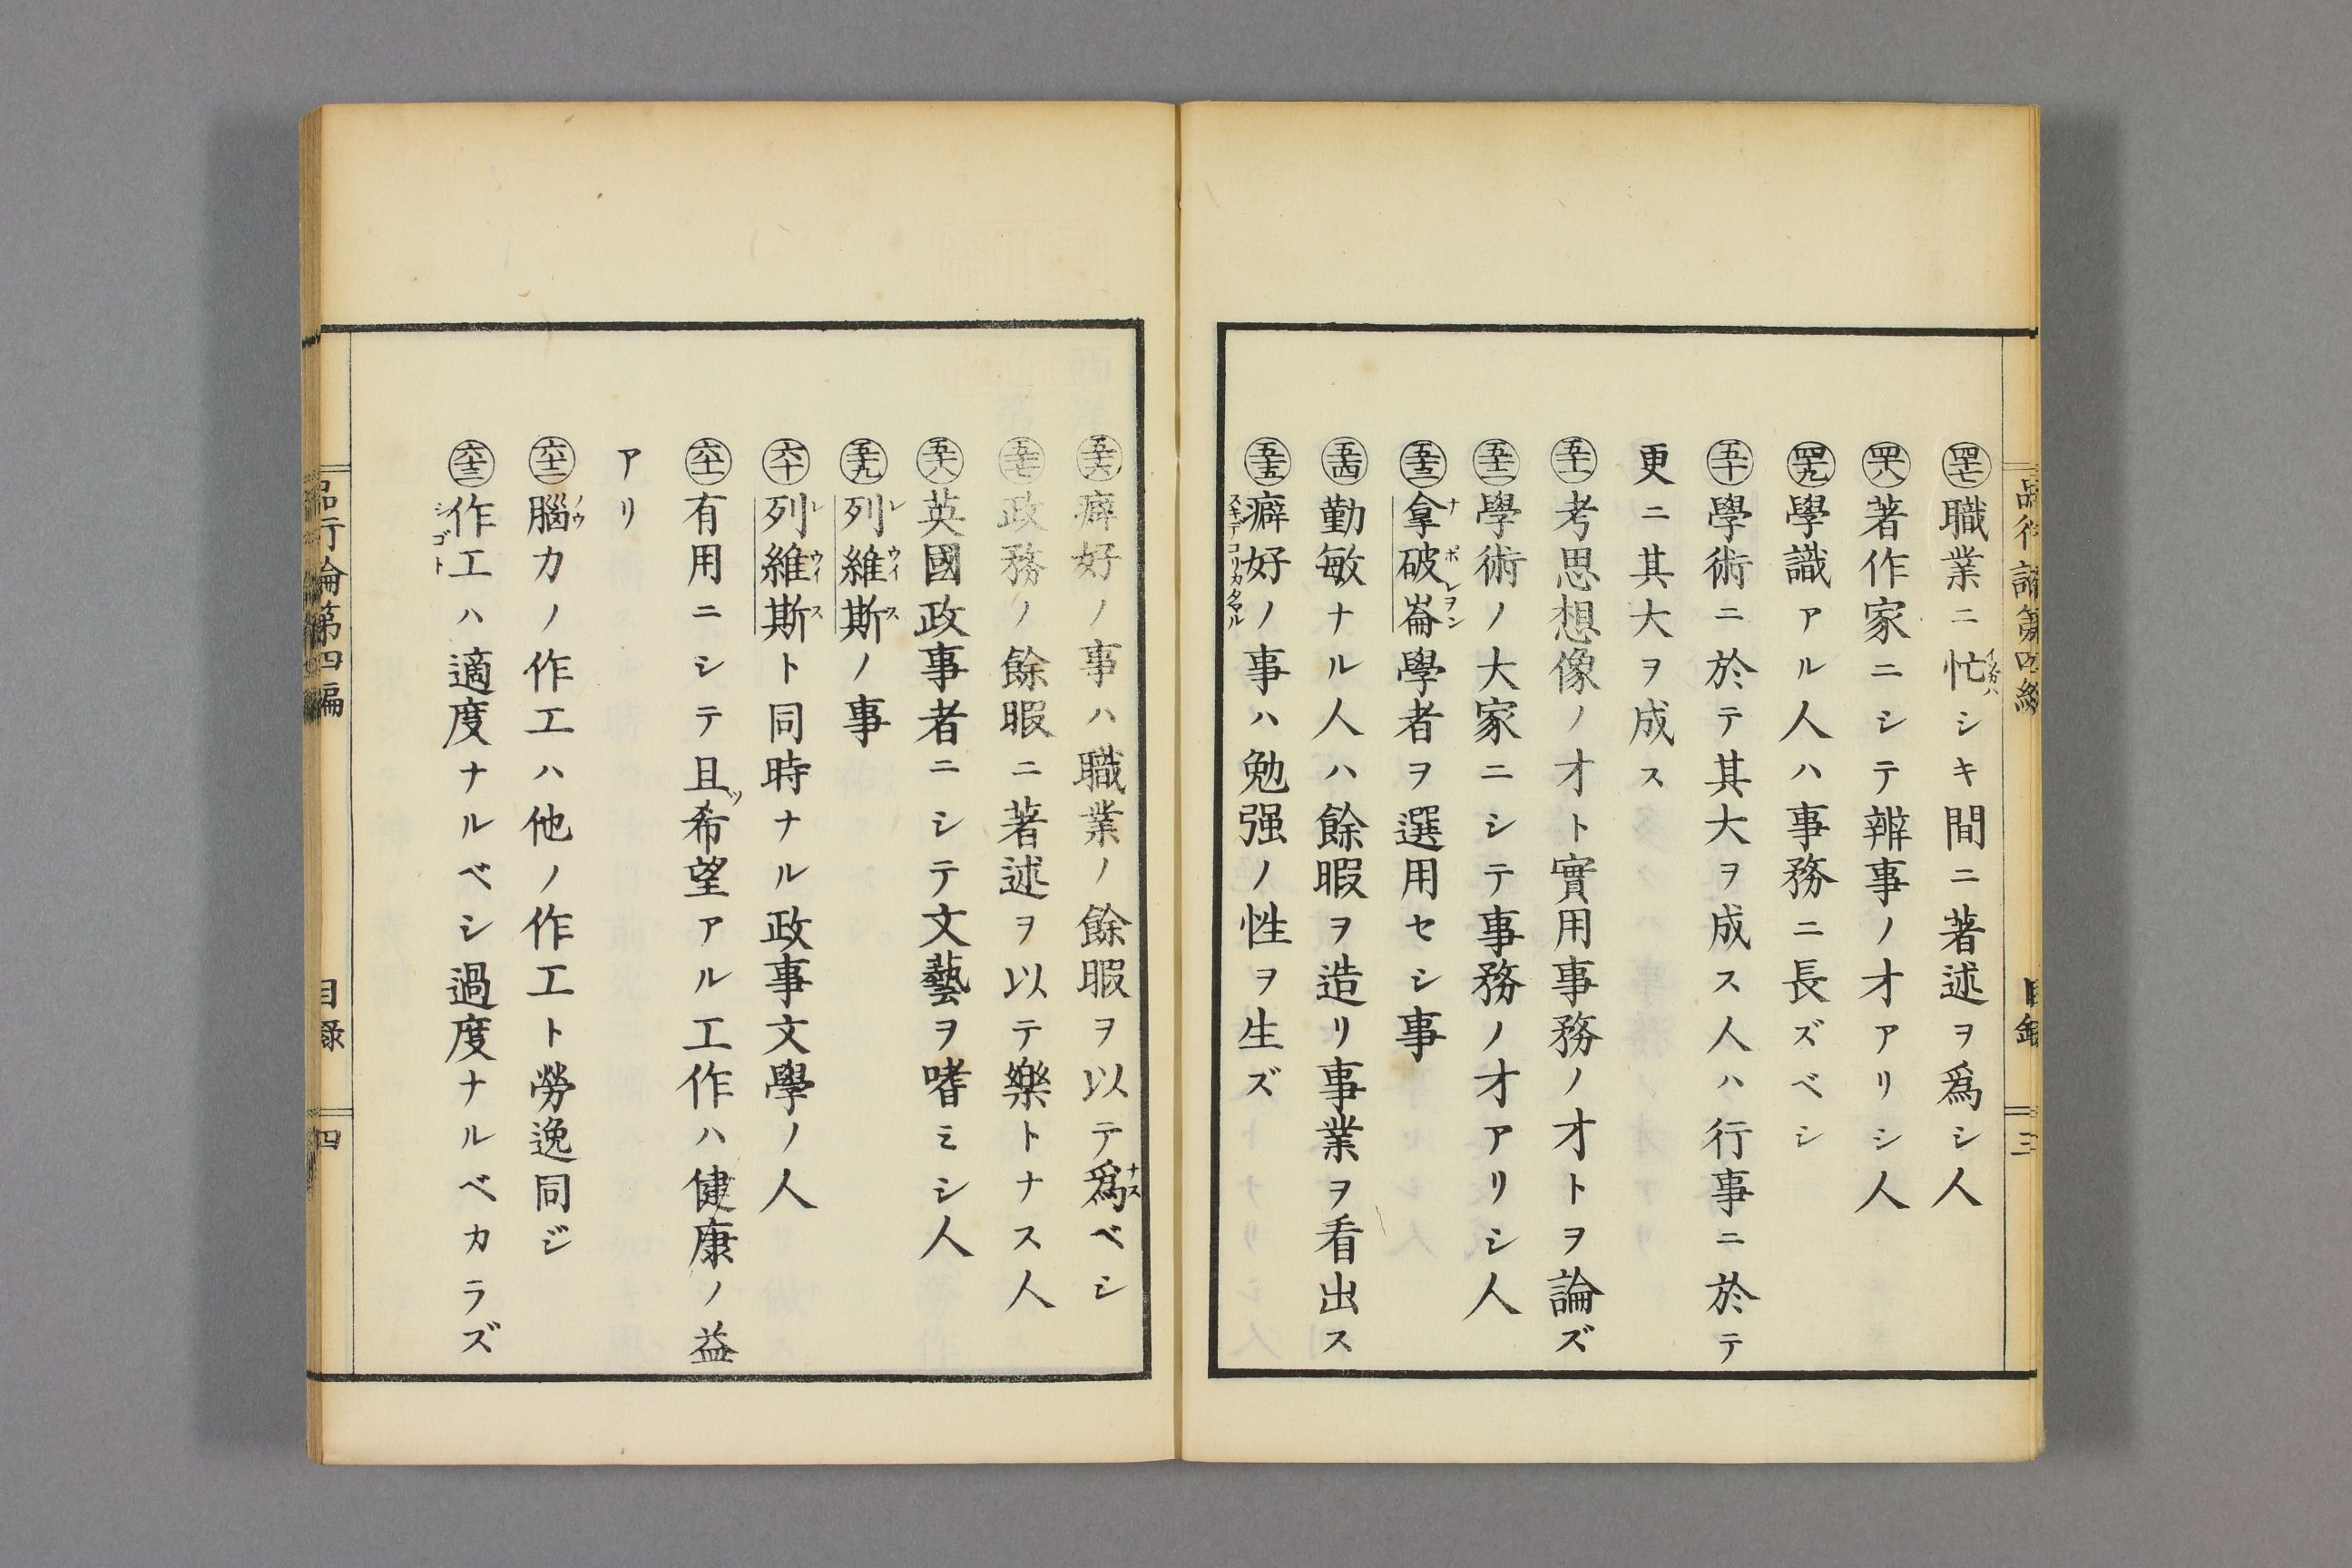 品行論第四編 目錄 三
㊼職業ニ忙シキ間ニ著述ヲ爲シ人
㊽著作家ニシテ辨事ノ才アリシ人
㊾學識アル人ハ事務ニ長ズベシ
㊿學術ニ於テ其大ヲ成ス人ハ行事ニ於テ
更ニ其大ヲ成ス
五十一考思想像ノ才ト實用事務ノ才トヲ論ズ
五十二學術ノ大家ニシテ事務ノ才アリシ人
五十三拿破崙學者ヲ選用セシ事
ナポレヲン
五十四勤敏ナル人ハ餘暇ヲ造リ事業ヲ看出ス
五十五癖好ノ事ハ勉强ノ性ヲ生ズ
五十六癖好ノ事ハ職業ノ餘暇ヲ以テ爲ベシ
ナス
五十七政務ノ餘暇ニ著述ヲ以テ樂トナス人
五十八英國政事者ニシテ文藝ヲ嗜ミシ人
五十九列維斯ノ事
レウイス
六十列維斯ト同時ナル政事文學ノ人
レウイス
六十一有用ニシテ且希望アル工作ハ健康ノ益
ツ
アリ
六十二腦力ノ作工ハ他ノ作工ト勞逸同ジ
ノウ
六十三作工ハ適度ナルベシ過度ナルベカラズ
シゴト
品行論第四編 目錄 四